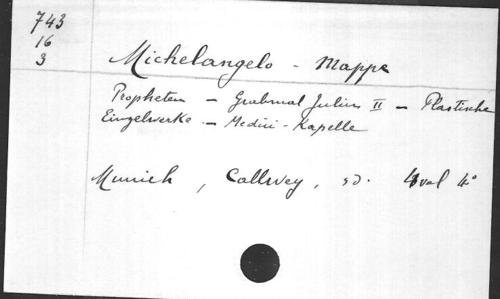 743
16
3
Michelangelo - Mappe
Propheten - Grabmal Julius II - Plastische
Einzelwerke - Medici-Kapelle
Munich, Callwey, sd. 4 vol 4°